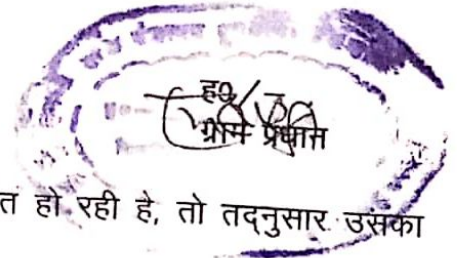 ह०/
ग्राम प्रधान
त हो रही है, तो तद्नुसार उसका